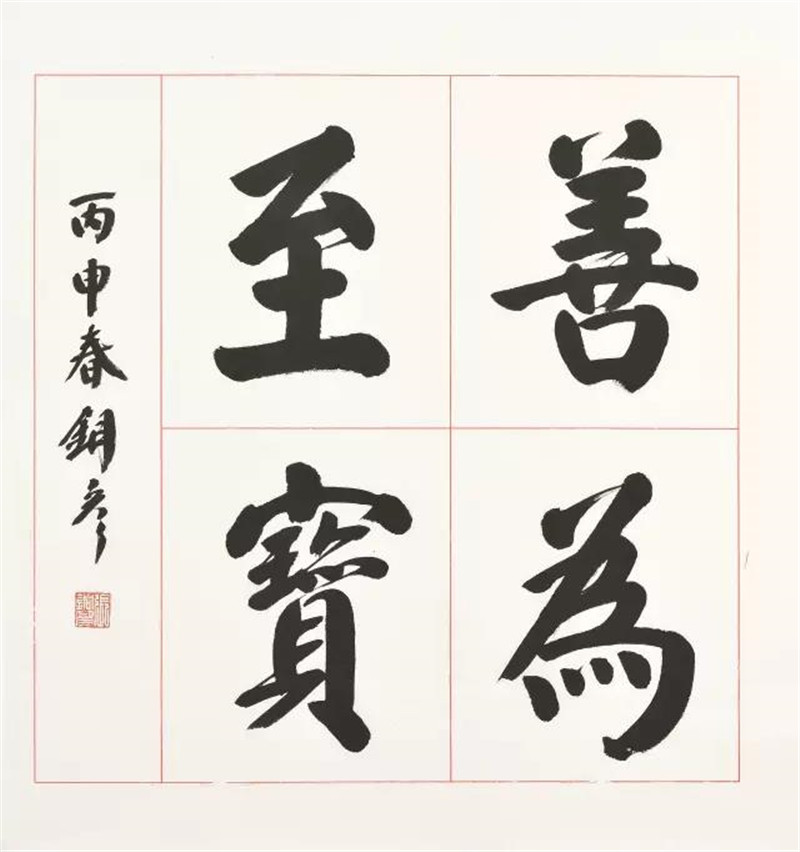 善為
至寶
丙申春銅彥